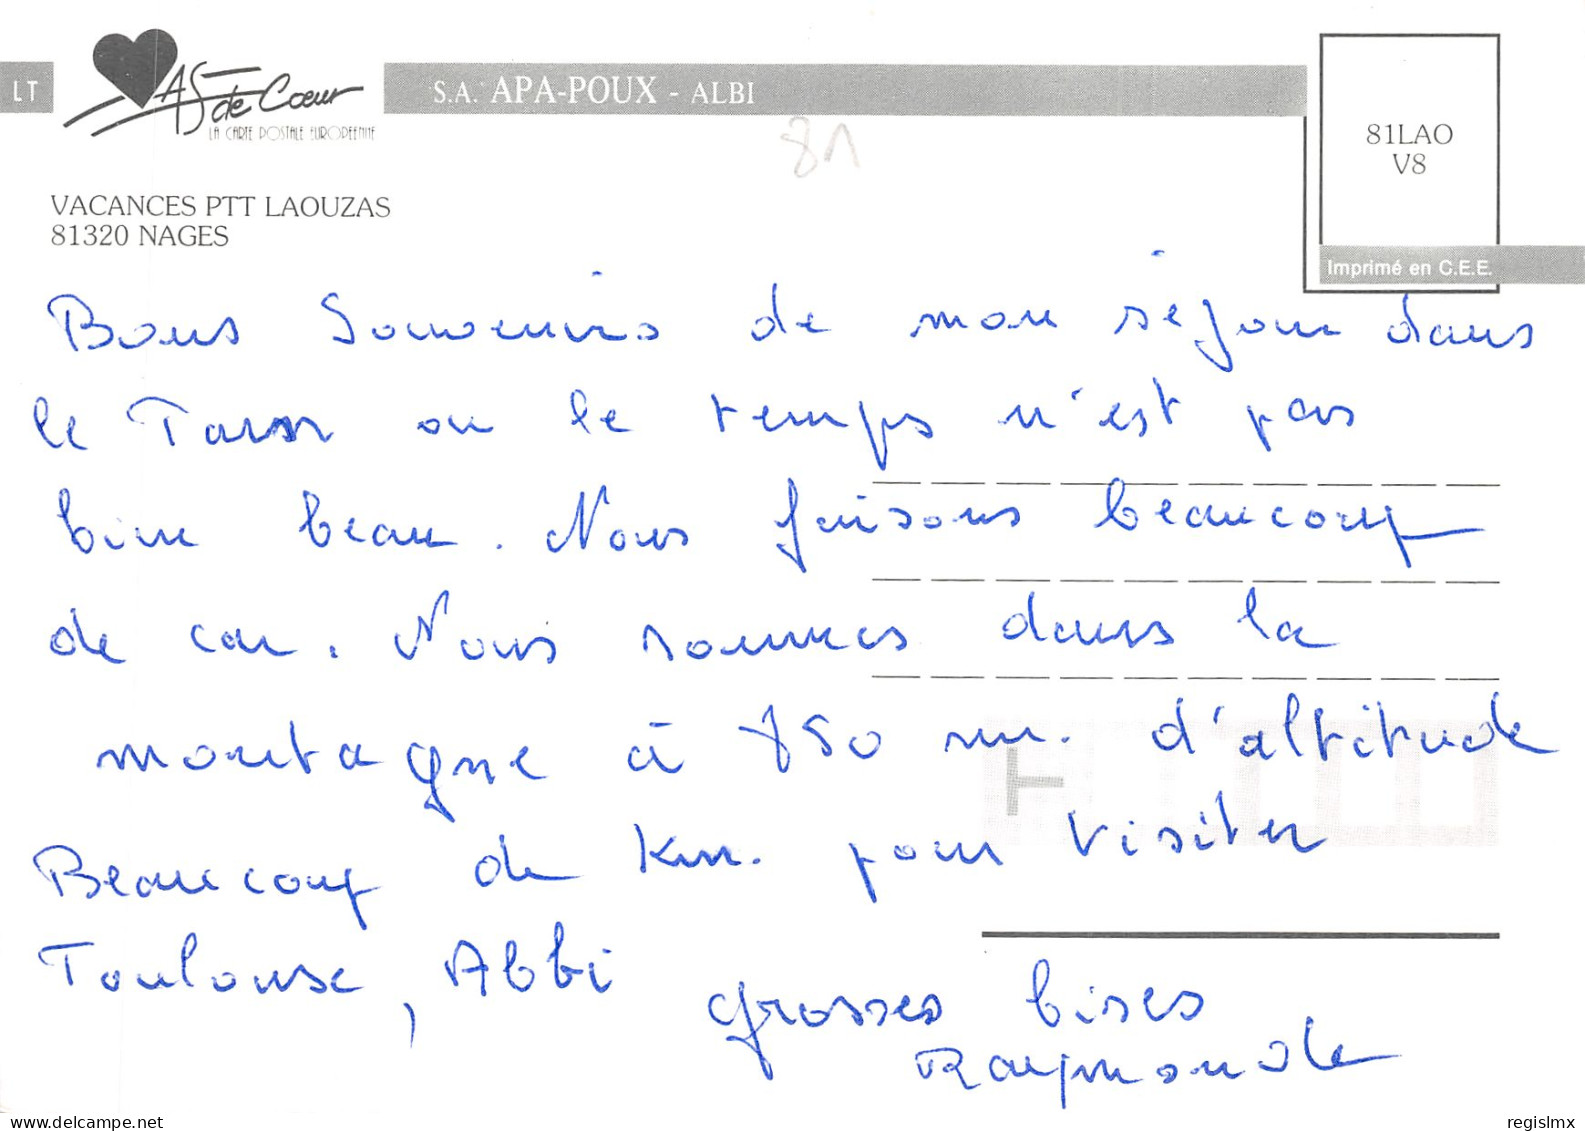 LT
AS de Cœur
LA CARTE POSTALE EUROPEENNE
S.A. APA-POUX - ALBI
81
81LAO
V8
VACANCES PTT LAOUZAS
81320 NAGES
Imprimé en C.E.E.
Bons Souvenirs de mon séjour dans
le Tarn ou le temps n'est pas
bien beau. Nous faisons beaucoup
de car. Nous sommes dans la
montagne à 850 m. d'altitude
Beaucoup de Km. pour visiter
Toulouse, Albi
grosses bises
Raymonde
delcampe.net
regislmx